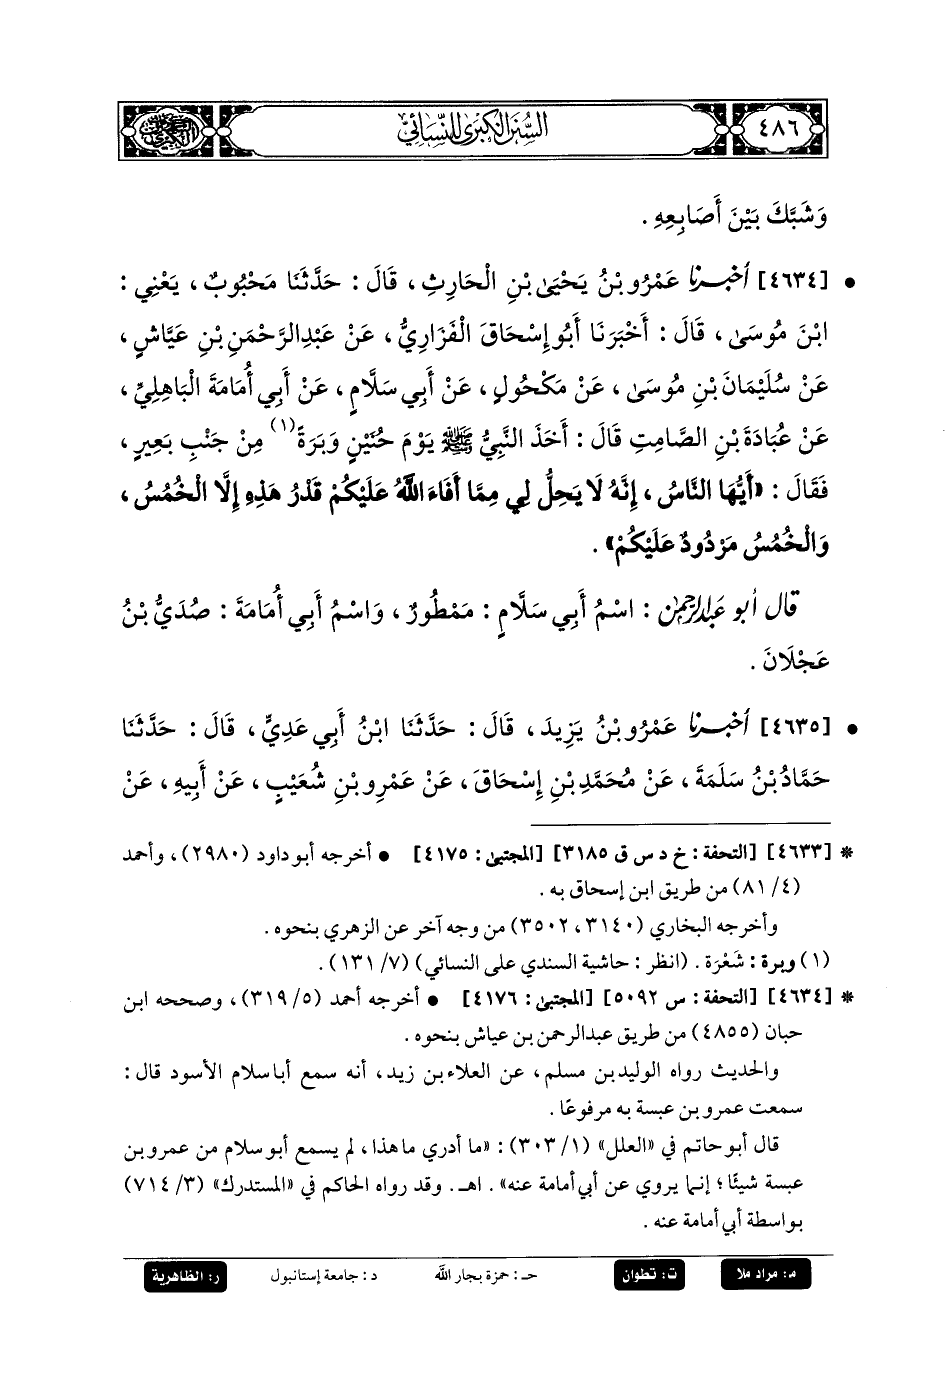 ٤٨٦
السُّنَنُ الْكُبْرَى لِلنَّسَائِيِّ
وَشَبَّكَ بَيْنَ أَصَابِعِهِ .
• [٤٦٣٤] أخبرنا عَمْرُو بْنُ يَحْيَىٰ بْنِ الْحَارِثِ ، قَالَ : حَدَّثَنَا مَحْبُوبٌ ، يَعْنِي :
ابْنَ مُوسَىٰ ، قَالَ : أَخْبَرَنَا أَبُو إِسْحَاقَ الْفَزَارِيُّ ، عَنْ عَبْدِ الرَّحْمَنِ بْنِ عَيَّاشٍ ،
عَنْ سُلَيْمَانَ بْنِ مُوسَىٰ ، عَنْ مَكْحُولٍ ، عَنْ أَبِي سَلَّامٍ ، عَنْ أَبِي أُمَامَةَ الْبَاهِلِيِّ ،
عَنْ عُبَادَةَ بْنِ الصَّامِتِ قَالَ : أَخَذَ النَّبِيُّ ﷺ يَوْمَ حُنَيْنٍ وَبَرَةً (١) مِنْ جَنْبِ بَعِيرٍ ،
فَقَالَ : «أَيُّهَا النَّاسُ ، إِنَّهُ لَا يَحِلُّ لِي مِمَّا أَفَاءَ اللَّهُ عَلَيْكُمْ قَدْرُ هَذِهِ إِلَّا الْخُمُسُ ،
وَالْخُمُسُ مَرْدُودٌ عَلَيْكُمْ» .
قال أبو عبد الرحمن : اسْمُ أَبِي سَلَّامٍ : مَمْطُورٌ ، وَاسْمُ أَبِي أُمَامَةَ : صُدَيُّ بْنُ
عَجْلَانَ .
• [٤٦٣٥] أخبرنا عَمْرُو بْنُ يَزِيدَ ، قَالَ : حَدَّثَنَا ابْنُ أَبِي عَدِيٍّ ، قَالَ : حَدَّثَنَا
حَمَّادُ بْنُ سَلَمَةَ ، عَنْ مُحَمَّدِ بْنِ إِسْحَاقَ ، عَنْ عَمْرِو بْنِ شُعَيْبٍ ، عَنْ أَبِيهِ ، عَنْ
* [٤٦٣٣] [التحفة : خ د س ق ٣١٨٥] [المجتبى : ٤١٧٥] • أخرجه أبو داود (٢٩٨٠) ، وأحمد
(٤/ ٨١) من طريق ابن إسحاق به .
وأخرجه البخاري (٣١٤٠، ٣٥٠٢) من وجه آخر عن الزهري بنحوه .
(١) وبرة : شَعْرَة . (انظر : حاشية السندي على النسائي) (٧/ ١٣١) .
* [٤٦٣٤] [التحفة : س ٥٠٩٢] [المجتبى : ٤١٧٦] • أخرجه أحمد (٥/ ٣١٩) ، وصححه ابن
حبان (٤٨٥٥) من طريق عبدالرحمن بن عياش بنحوه .
والحديث رواه الوليد بن مسلم ، عن العلاء بن زيد ، أنه سمع أبا سلام الأسود قال :
سمعت عمرو بن عبسة به مرفوعًا .
قال أبو حاتم في «العلل» (١/ ٣٠٣) : «ما أدري ما هذا ، لم يسمع أبو سلام من عمرو بن
عبسة شيئًا ؛ إنما يروي عن أبي أمامة عنه» . اهـ . وقد رواه الحاكم في «المستدرك» (٣/ ٧١٤)
بواسطة أبي أمامة عنه .
م: مراد ملا ت: تطوان حـ : حمزة بجار الله د : جامعة إستانبول ر: الظاهرية